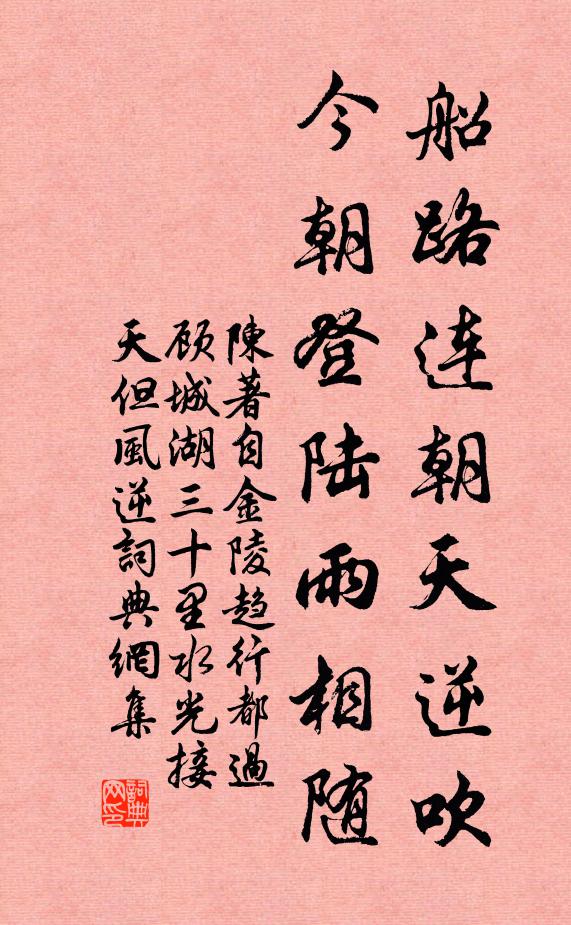 船路连朝天逆吹
今朝登陆雨相随
陳著自金陵趋行都過
顾城湖三十里水光接
天但風逆詞典網集
詞典
网印